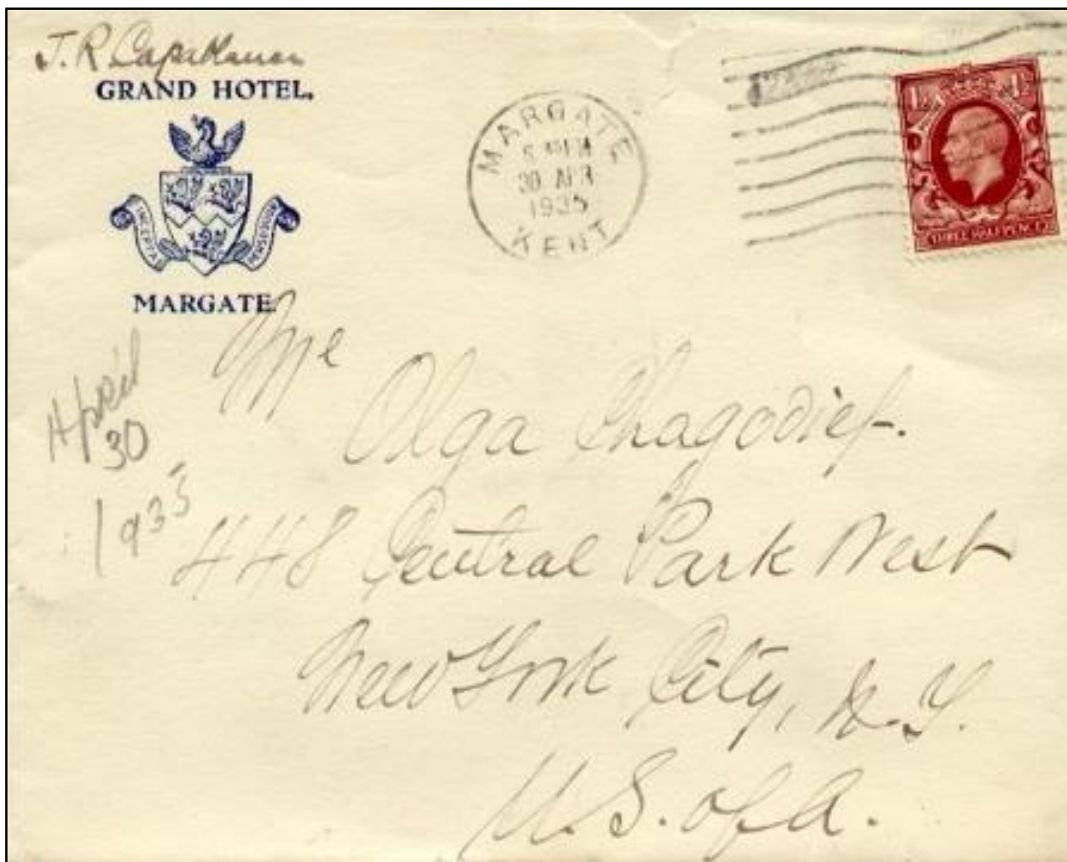 J. R. Capablanca
GRAND HOTEL,
INCEPTA
MARGATE.
MARGATE
30 APR
1935
KENT
1½ 1½
THREE HALFPENCE
April
30
1935
Me
Olga Chagodief.
448 Central Park West
New York City, N.Y.
U.S. of A.